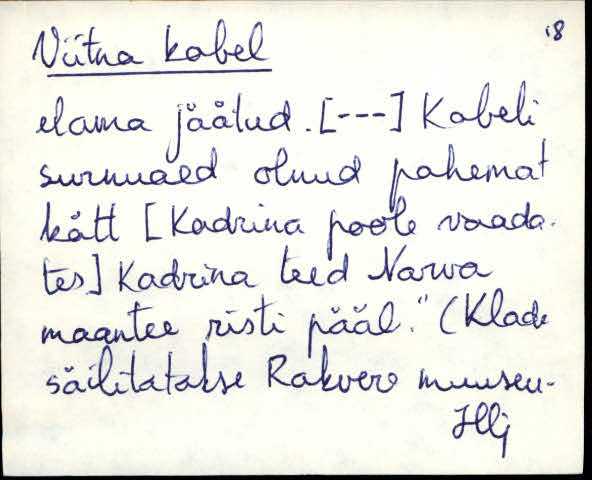 18
Viitna kabel
elama jäätud. [---] Kabeli
surnuaed olnud pahemat
kätt [Kadrina poole vaada-
tes] Kadrina teed Narva
maantee risti pääl." (Klade
säilitatakse Rakvere muuseu-
Hlj